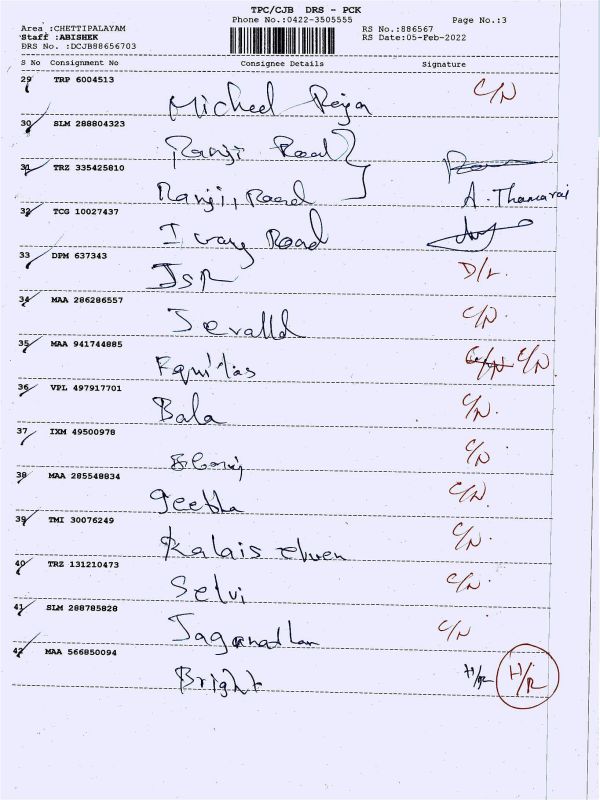 TPC/CJB DRS - PCK
Phone No.:0422-3505555
Page No.:3
Area :CHETTIPALAYAM
RS No.:886567
Staff :ABISHEK
RS Date:05-Feb-2022
DRS No. :DCJB88656703
S No Consignment No Consignee Details Signature
29 TRP 6004513
Micheel Raja C/N
30 SLM 288804323
Ranji Road
31 TRZ 335425810
Ranji, Road A. Thamarai
32 TCG 10027437
I way Road
33 DPM 637343
JSR D/L.
34 MAA 286286557
Jevalld C/N.
35 MAA 941744885
Equitas C/N C/N.
36 VPL 497917701
Bala C/N.
37 IXM 49500978
C/N
38 MAA 285548834
Geetha C/N.
39 TMI 30076249
Kalais elven C/N.
40 TRZ 131210473
Selvi C/N.
41 SLM 288785828
Jaganathan C/N
42 MAA 566850094
Bright H/R H/R